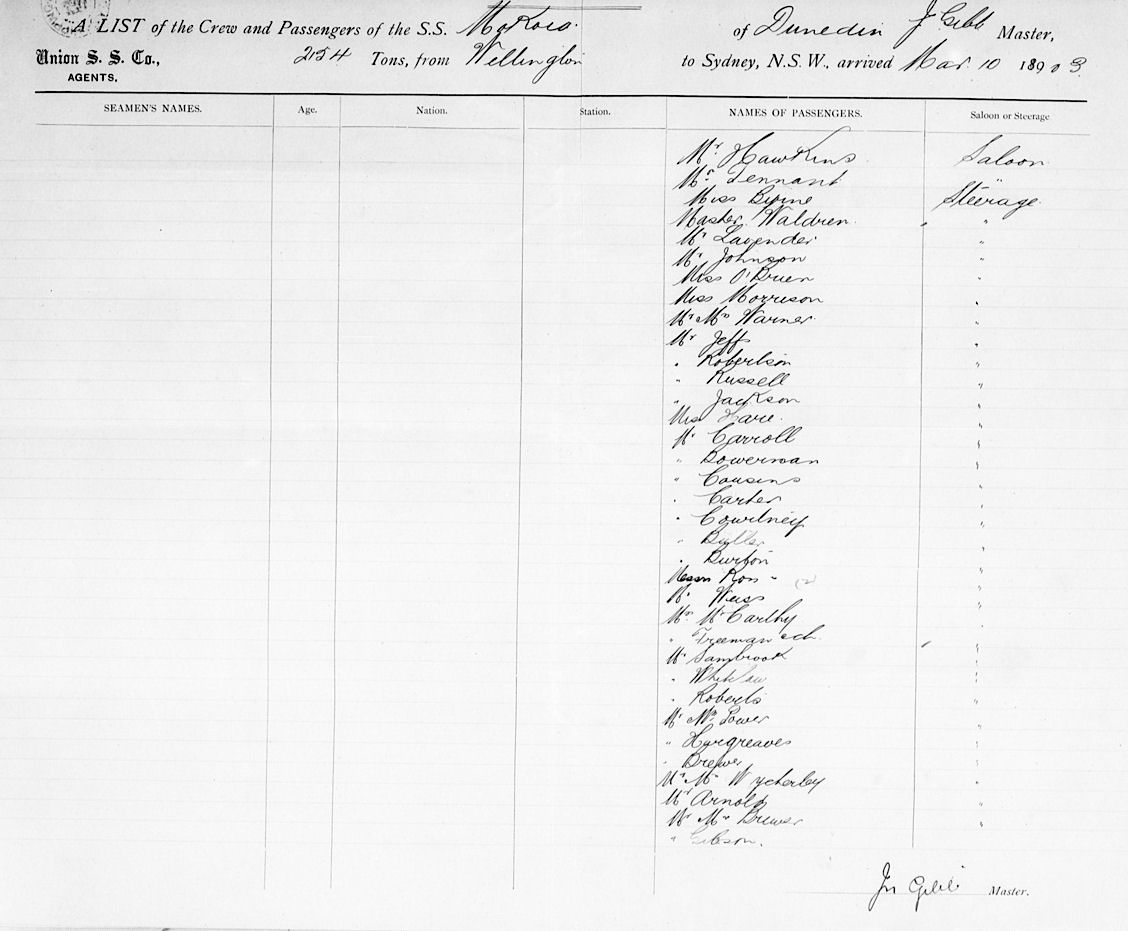 A LIST of the Crew and Passengers of the S.S. Mokoia of Dunedin J Gibb Master,
Union S. S. Co., 2154 Tons, from Wellington to Sydney, N.S.W., arrived Mar. 10 1890 3.
AGENTS.
SEAMEN'S NAMES. Age. Nation. Station. NAMES OF PASSENGERS. Saloon or Steerage
Mr Hawkins Saloon
Mr Tennant "
Miss Byrne Steerage
Master Waldren "
Mr Lavender "
Mr Johnson "
Miss O'Brien "
Miss Morrison "
Mr & Mrs Warner "
Mr Jeffs "
" Robertson "
" Russell "
" Jackson "
Miss Hare "
Mr Carroll "
" Bowerman "
" Cousins "
" Carter "
" Courtney "
" Butler "
" Burton "
Messrs Ross (2) "
Mr Weiss "
Mrs McCarthy "
" Freeman & ch. "
Mr Sambrook "
" Whitelaw "
" Roberts "
Mr & Mrs Power "
" Hargreaves "
" Brewer "
Mr & Mrs Wycherley "
Mr Arnold "
Mr & Mrs Brewer "
" Gibson.
Jn Gibb Master.